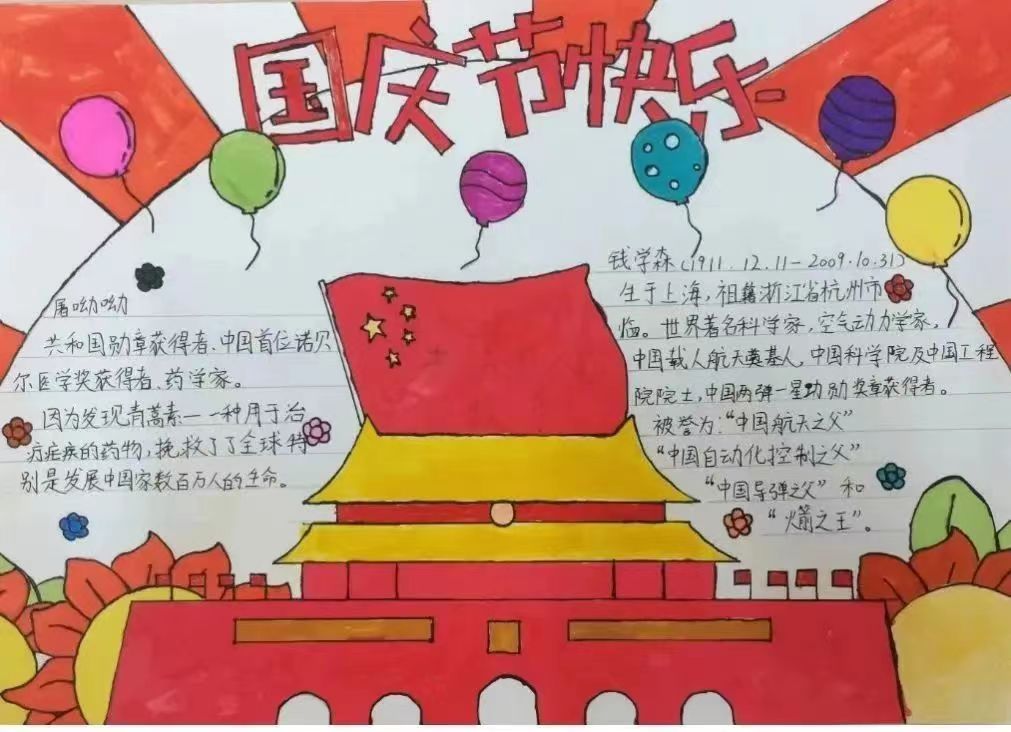 国庆节快乐
屠呦呦
共和国勋章获得者、中国首位诺贝
尔医学奖获得者、药学家。
因为发现青蒿素一一种用于治
疗疟疾的药物,挽救了了全球特
别是发展中国家数百万人的生命。
钱学森(1911.12.11-2009.10.31)
生于上海,祖籍浙江省杭州市
临。世界著名科学家,空气动力学家,
中国载人航天奠基人,中国科学院及中国工程
院院士,中国两弹一星功勋奖章获得者。
被誉为:“中国航天之父”
“中国自动化控制之父”
“中国导弹之父”和
“火箭之王”。